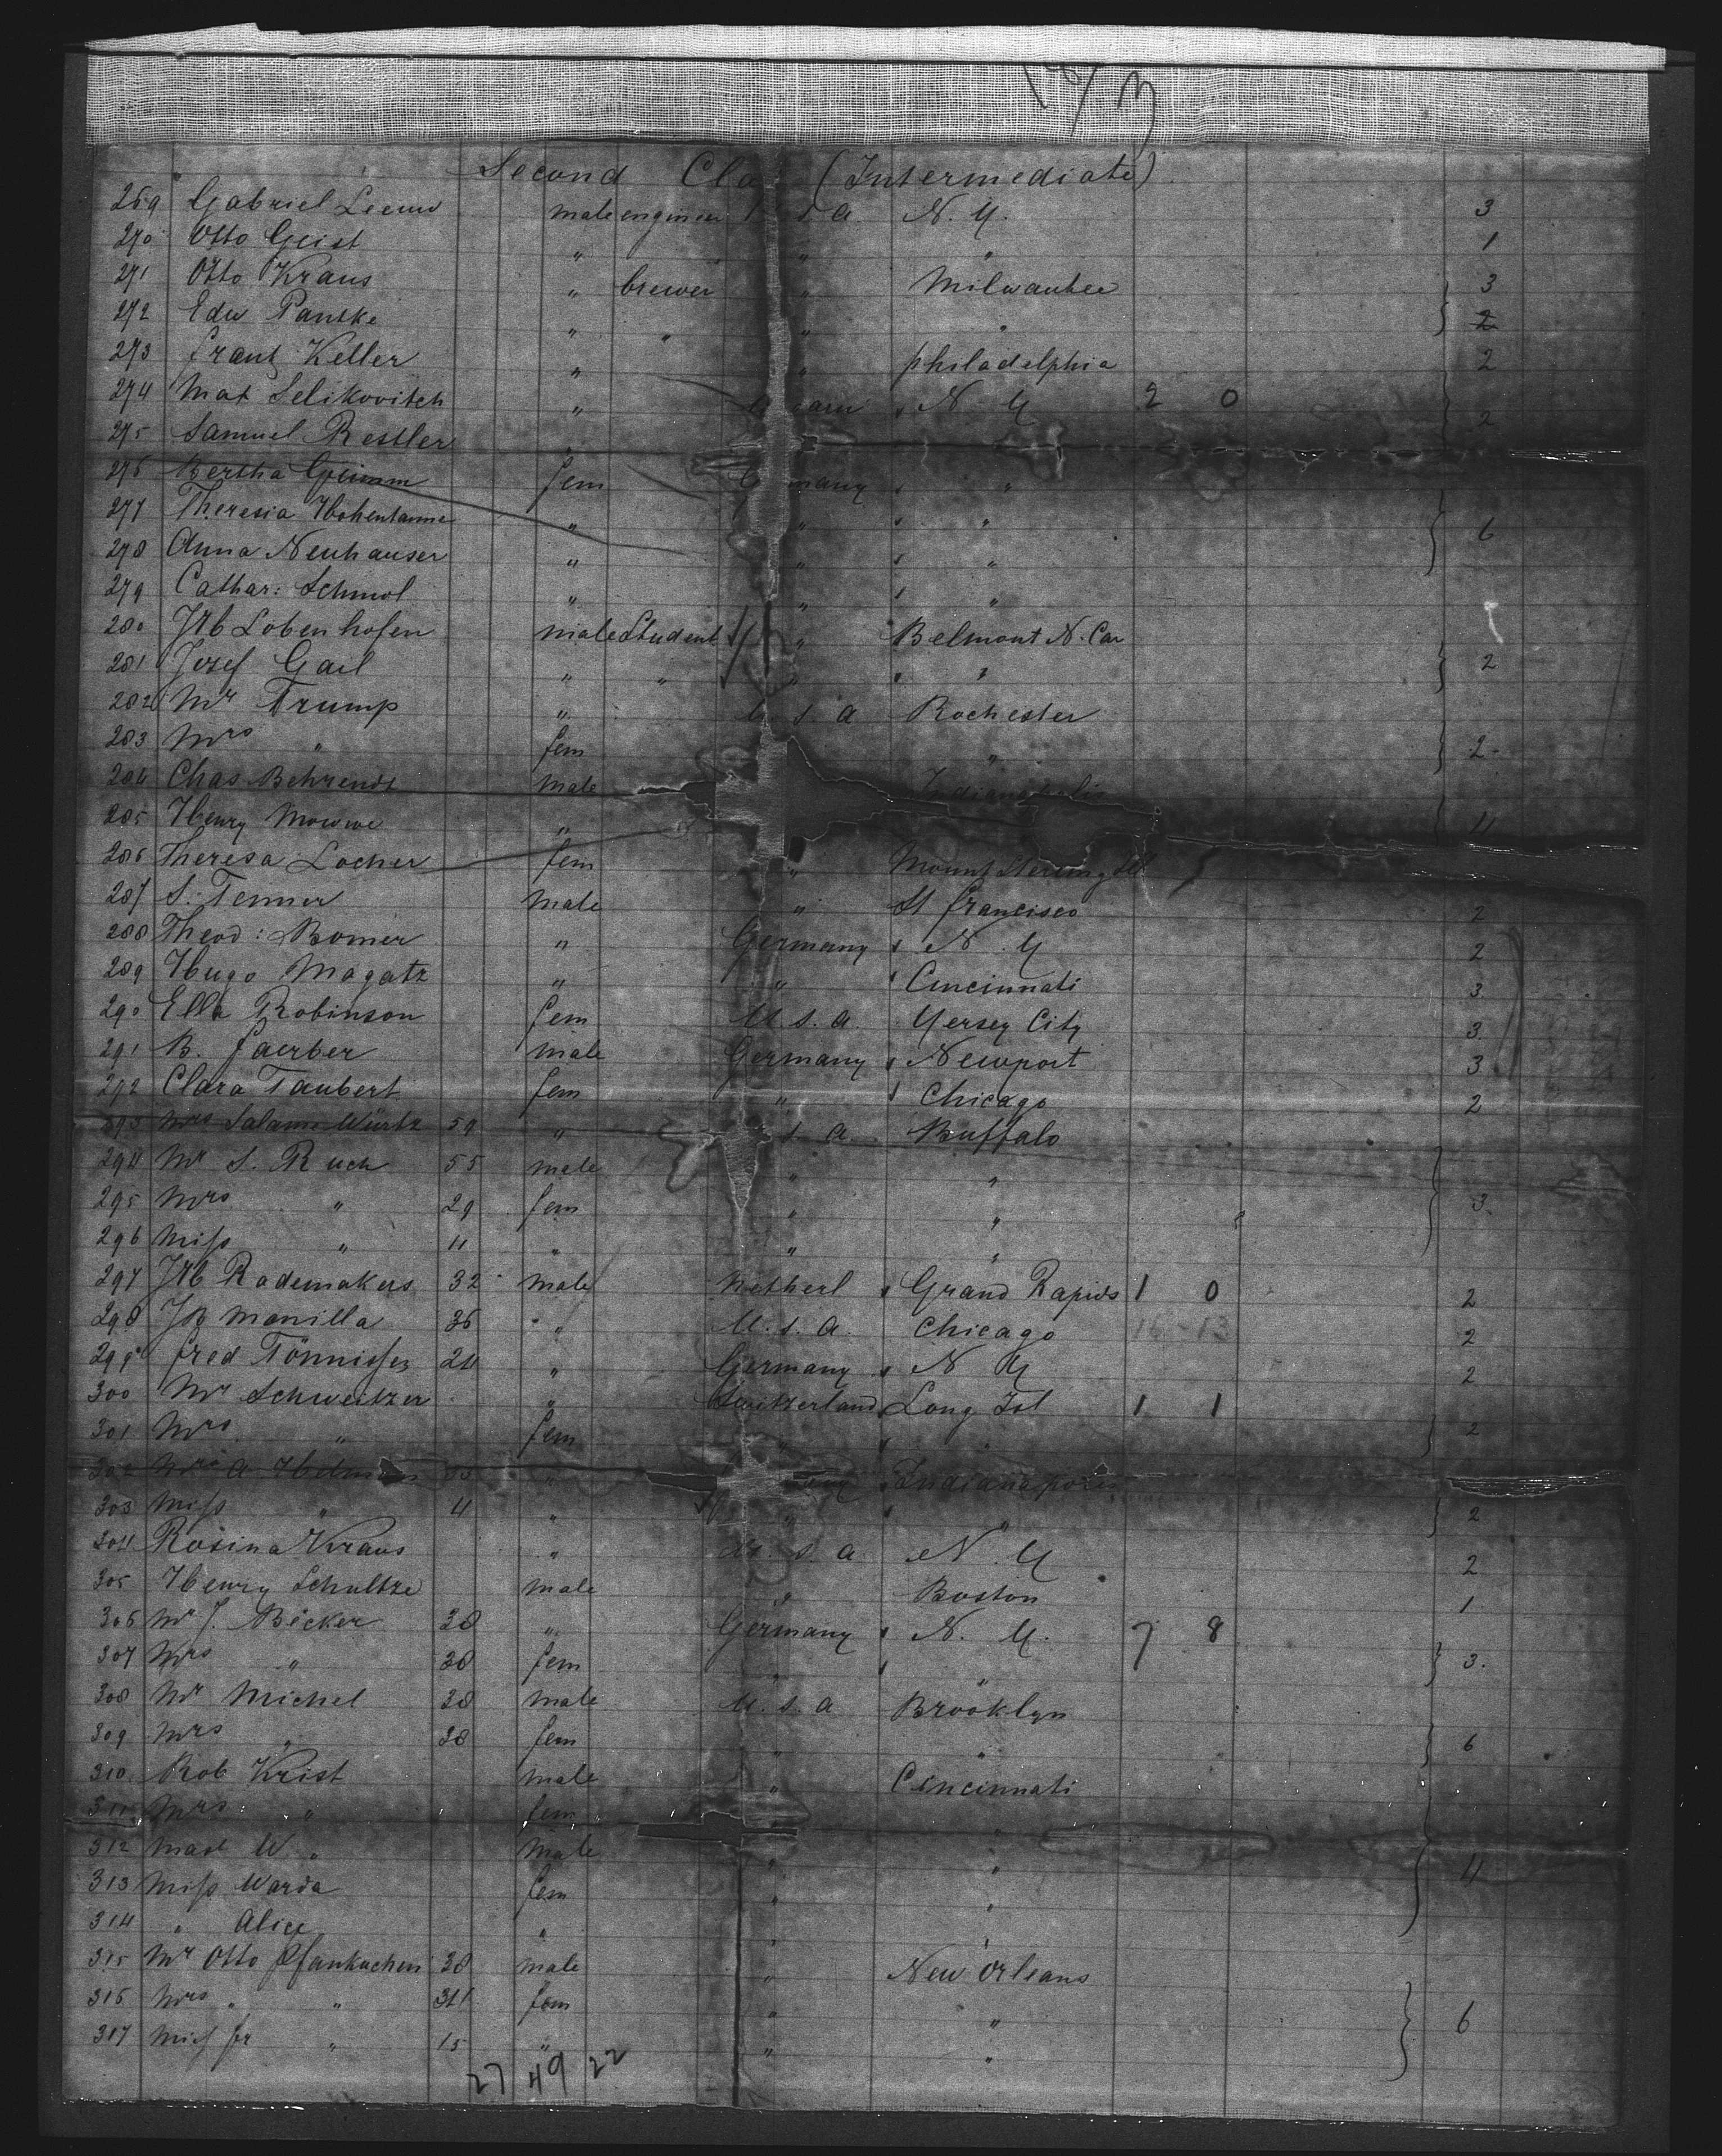 Second Cla (Intermediate)
269 Gabriel Leeuw male engineer s. a. N. Y. 3
270 Otto Geist " " " 1
271 Otto Kraus " brewer " Milwaukee 3
272 Edw Pantke " " " " 2
273 Franz Keller " " philadelphia 2
274 Max Selikovitch " " N. Y 2 0
275 Samuel Restler " 2
276 Bertha Grimm fem many " "
277 Theresia Hohentanne " " " " 6
278 Anna Neuhauser " " " "
279 Cathar: Schmol " " " "
280 JH Lobenhofen male Student " Belmont N. Car
281 Josef Gail " " " " 2
282 Mr Trump " U. s. a Rochester
283 Mrs " fem " 2
284 Chas Behrendt male Indianapolis
285 Henry Mowwe " 11
286 Theresa Locher fem " Mount Sterling Ill
287 S. Tenner male " St francisco 2
288 Theod: Bomer " Germany " N. Y 2
289 Hugo Magatz " " " Cincinnati 3
290 Ella Robinson fem U. s. a. Yersey City 3
291 B. faerber male Germany " Newport 3
292 Clara Taubert fem " " Chicago 2
293 Mrs Salame Würtz 59 " s. a. Buffalo
294 Mr S. Ruch 55 male " "
295 Mrs " 29 fem " " 3
296 Miss " 11 " " "
297 JH Rademakers 32 male Netherl " Grand Rapids 1 0 2
298 Manilla 36 " U. s. a. Chicago 16-13 2
299 fred Tönnisses 24 " Germany " N Y 2
300 Mr Schweitzer " Switzerland " Long Isl 1 1
301 Mrs " fem " " 2
302 Mrs A " Indianapolis
303 Miss " 4 " " " " 2
304 Rosina Kraus " U. s. a. N. Y 2
305 Henry Schultze male " Boston 1
306 Mr J. Becker 38 " Germany " N. Y. 7 8
307 Mrs " 38 fem " " " 3.
308 Mr Michel 38 male U. s. a Brooklyn
309 Mrs " 28 fem " " 6
310 Rob Krist male " Cincinnati
311 Mrs " fem "
312 Mast W " male " " 4
313 Miss Warda fem " "
314 " Alice " " "
315 Mr Otto Pfankuchen 38 male " New Orleans
316 Mrs " " 34 fem " " 6
317 Miss " 15 " " "
27 49 22